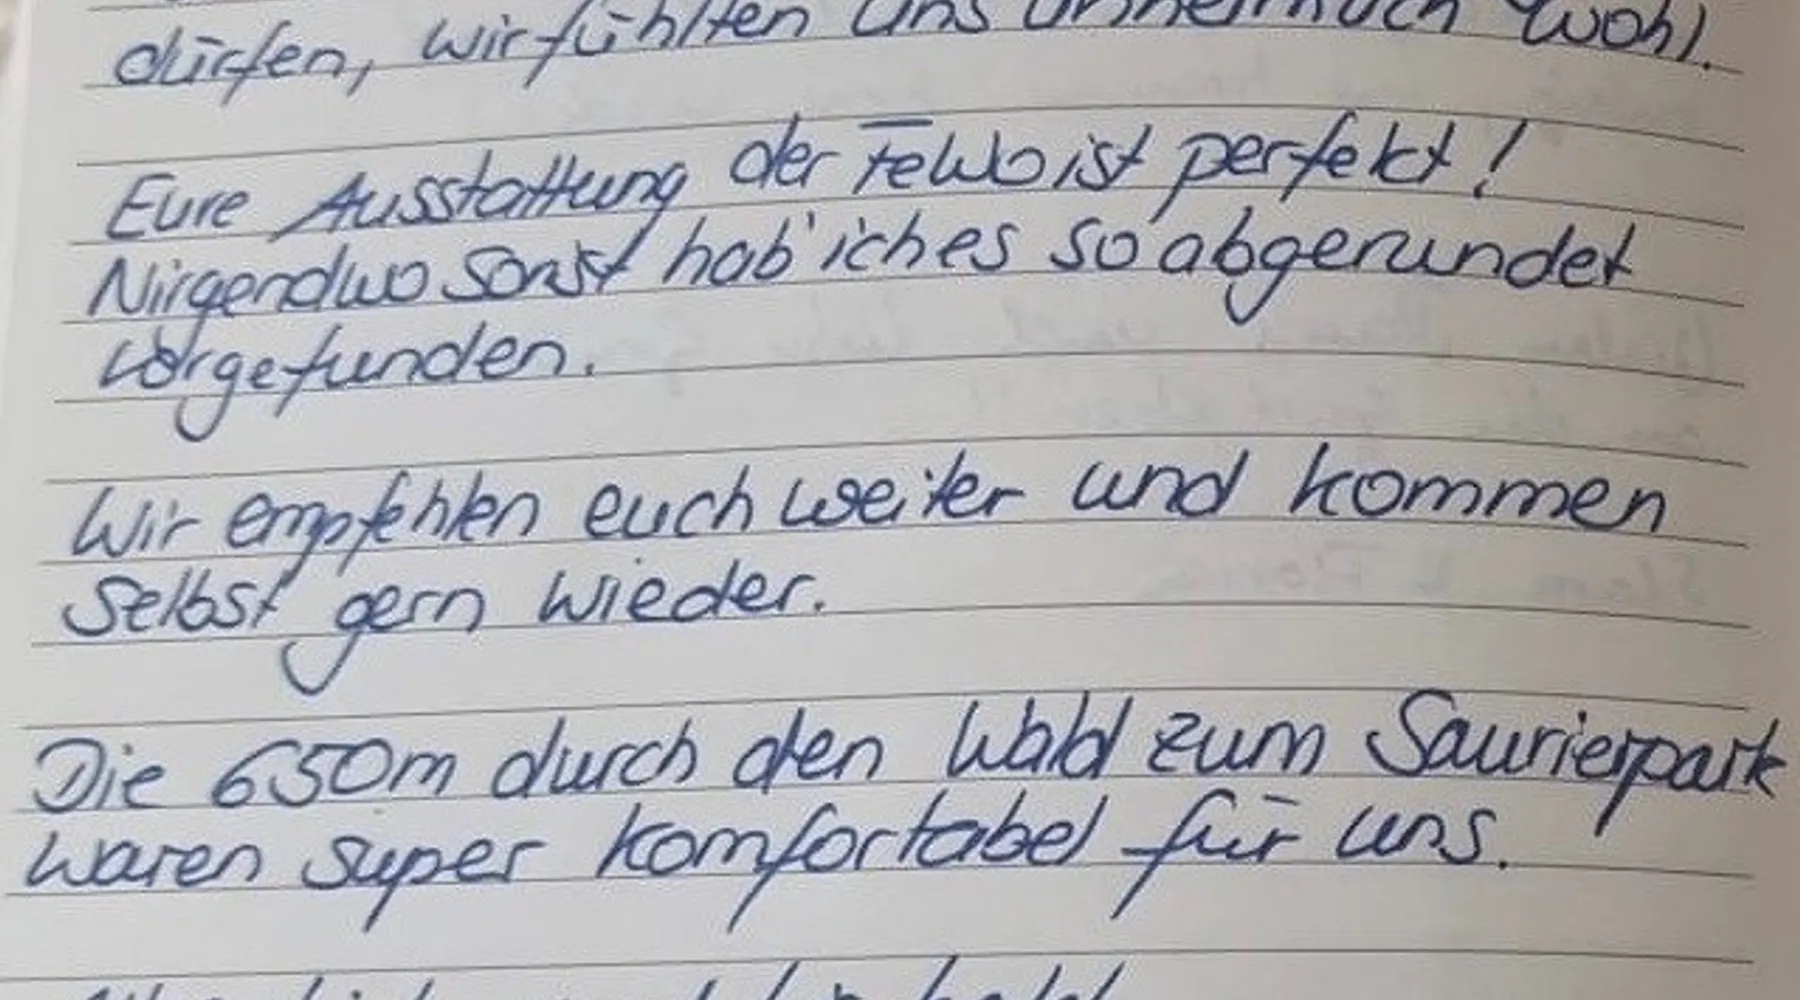 dürfen, wir fühlten uns unheimlich wohl.
Eure Ausstattung der FeWo ist perfekt!
Nirgendwo sonst hab' ich es so abgerundet
vorgefunden.
Wir empfehlen euch weiter und kommen
selbst gern wieder.
Die 650m durch den Wald zum Saurierpark
waren super komfortabel für uns.